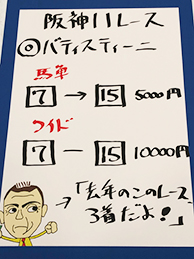 阪神11レース
◎バティスティーニ
馬単
7 → 15 5000円
ワイド
7 ー 15 10000円
→「去年のこのレース
3着だよ!」